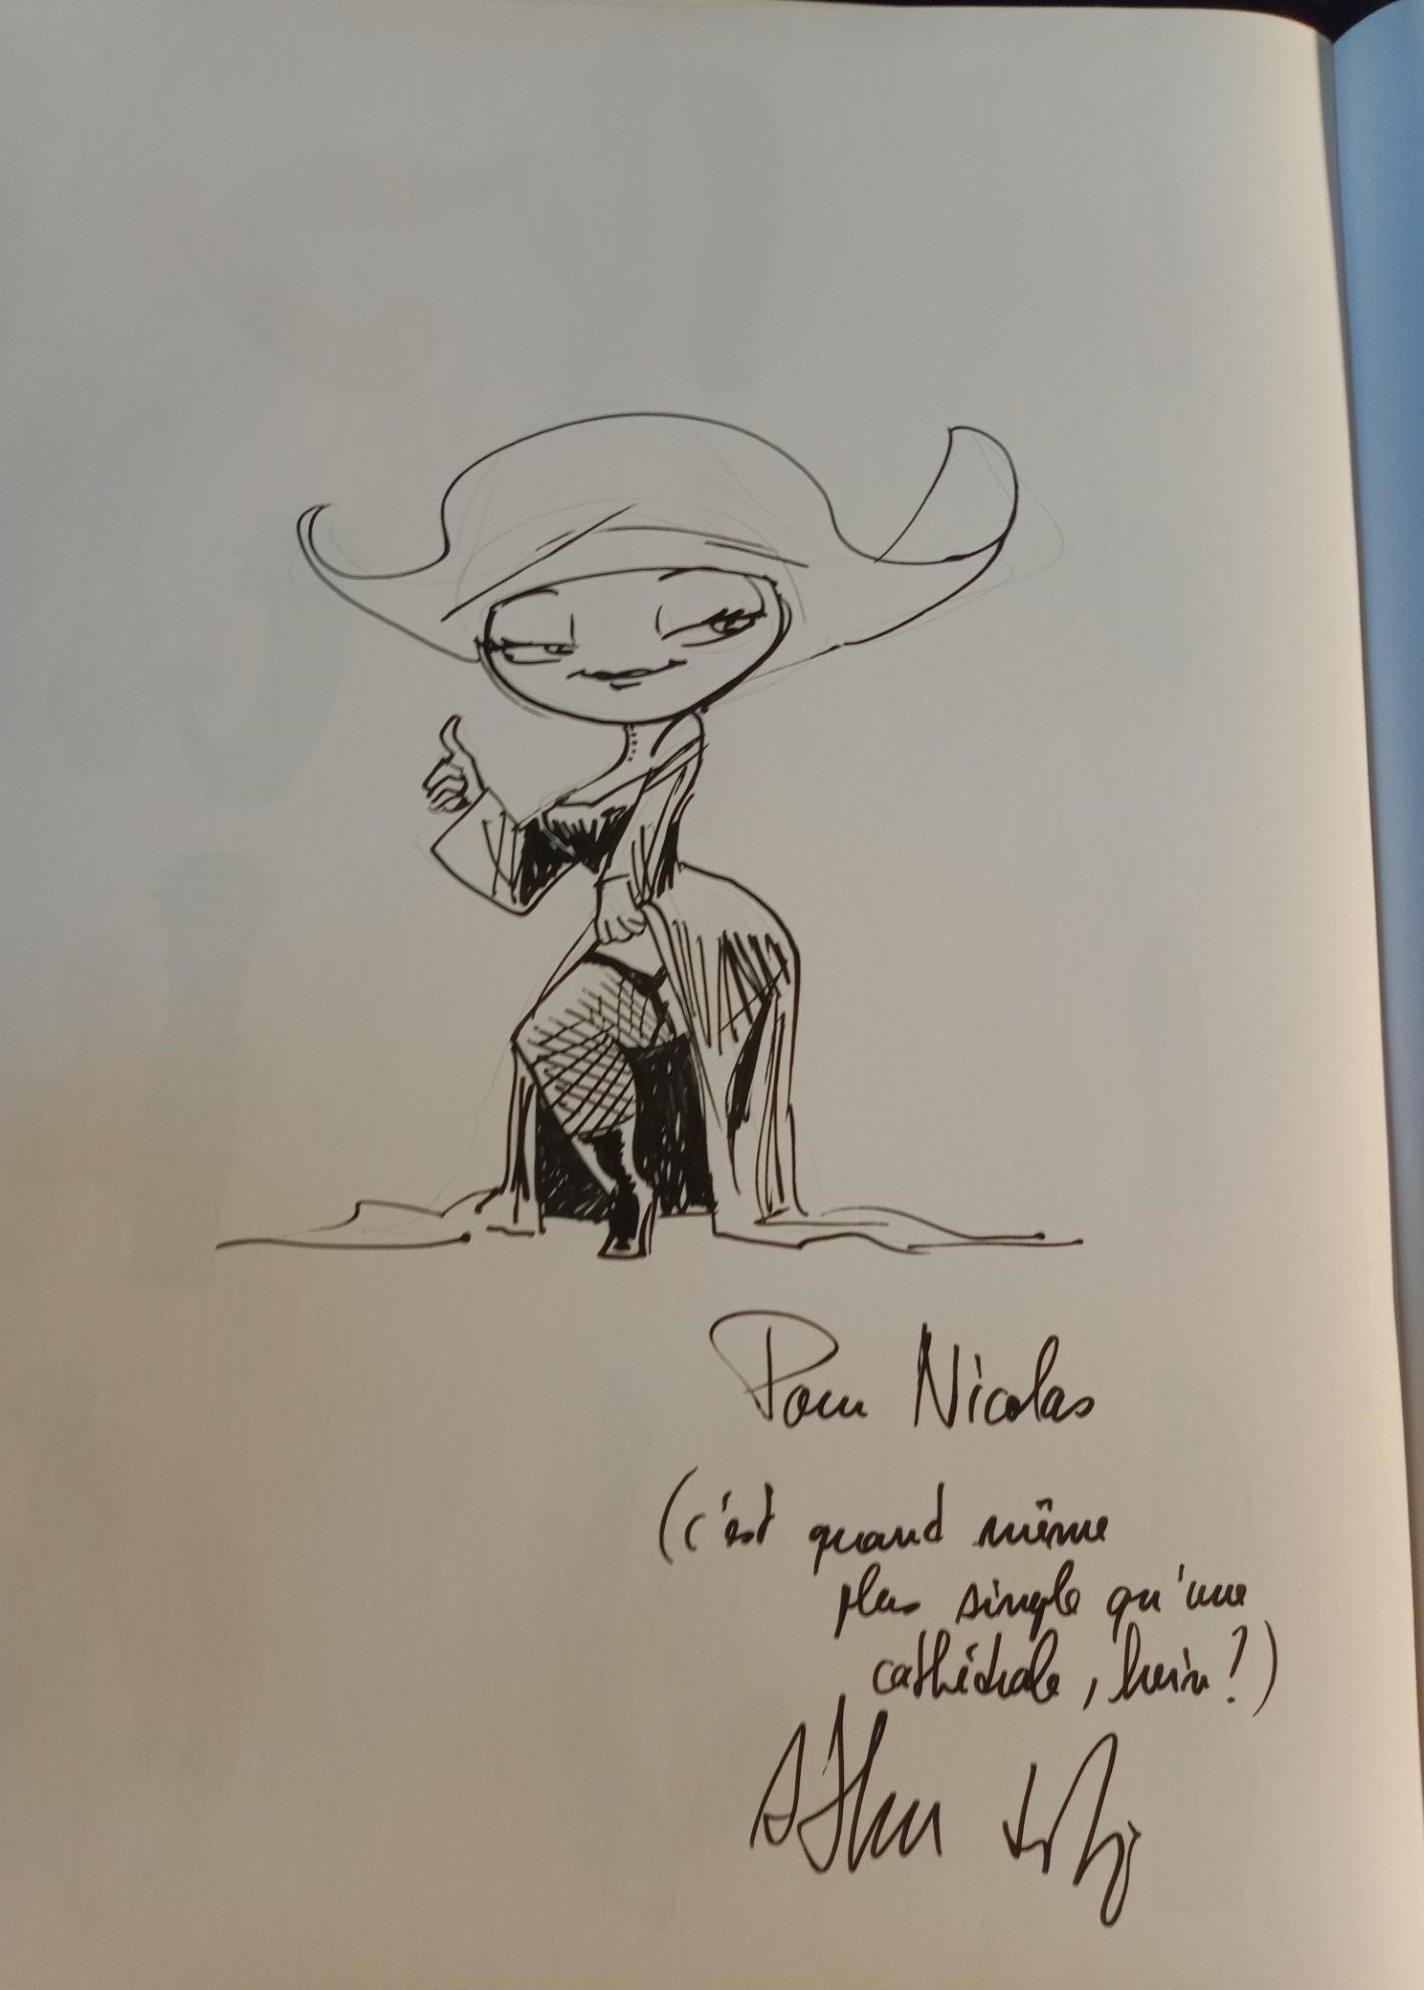 Pour Nicolas
(c'est quand même
plus simple qu'une
cathédrale, hein ?)